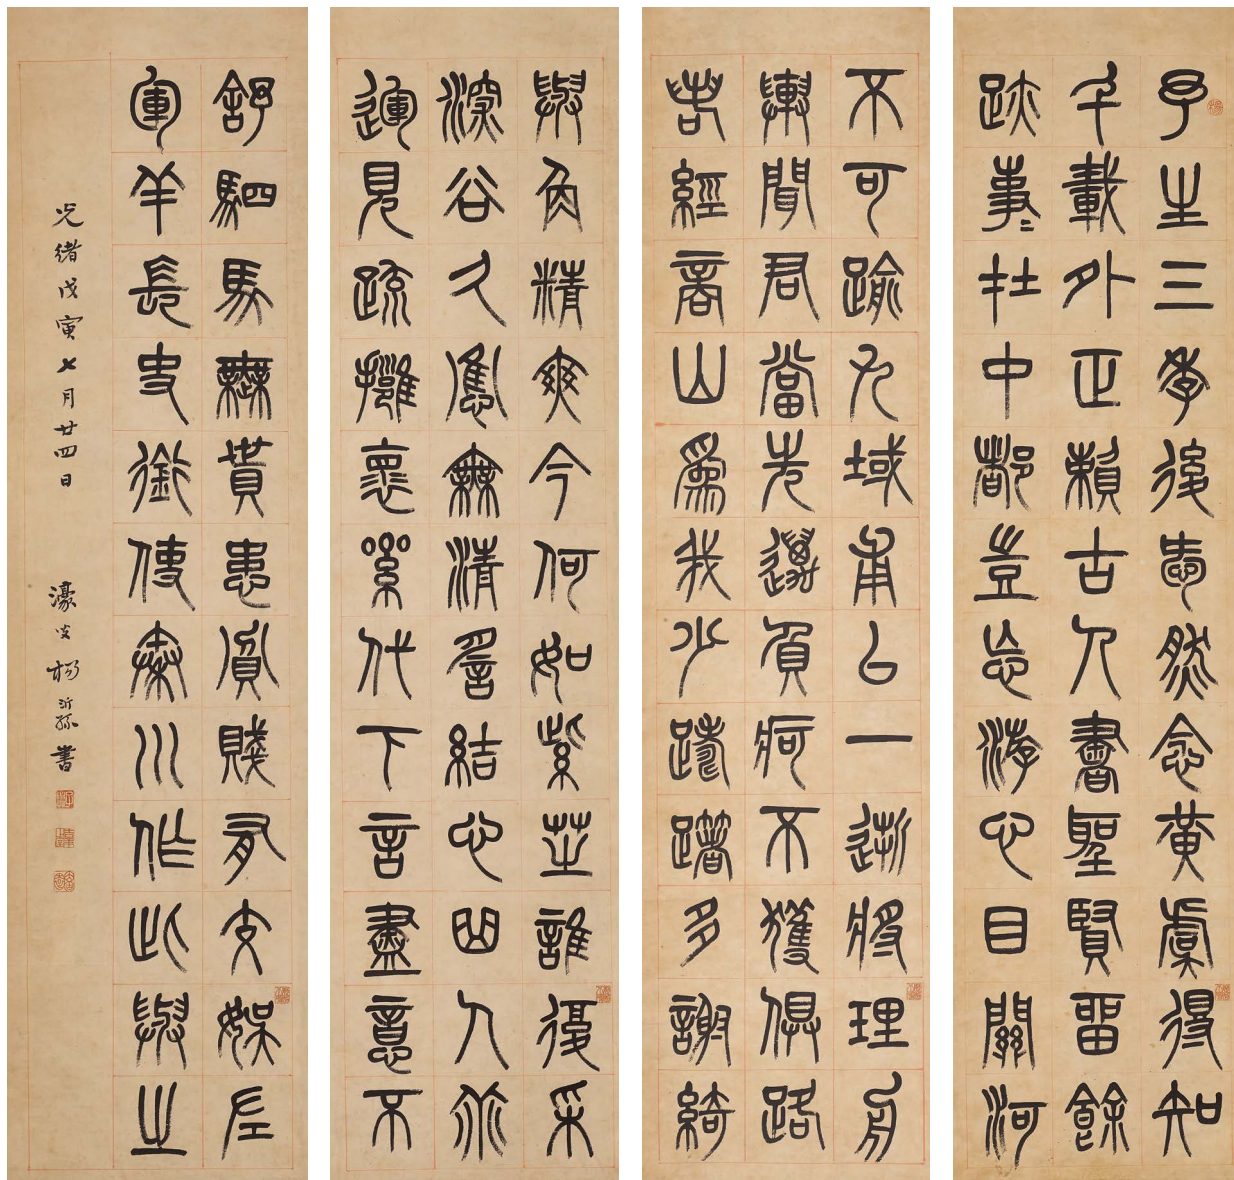 予生三季後然念黃虞得知
千載外正賴古人書聖賢留餘
跡事〻在中都豈忘游心目關河
不可踰九域甫已一逝將理舟
輿聞君當先邁負痾不獲俱路
若經商山爲我少躊躇多謝綺
與角精爽今何如紫芝誰復采
深谷久應蕪清謠結心曲人乖
運見疏擁懷累代下言盡意不
舒駟馬無貰患貧賤有交娛左
軍羊長史銜使秦川作此與之
光緒戊寅七月廿四日 濠叟楊沂孫書